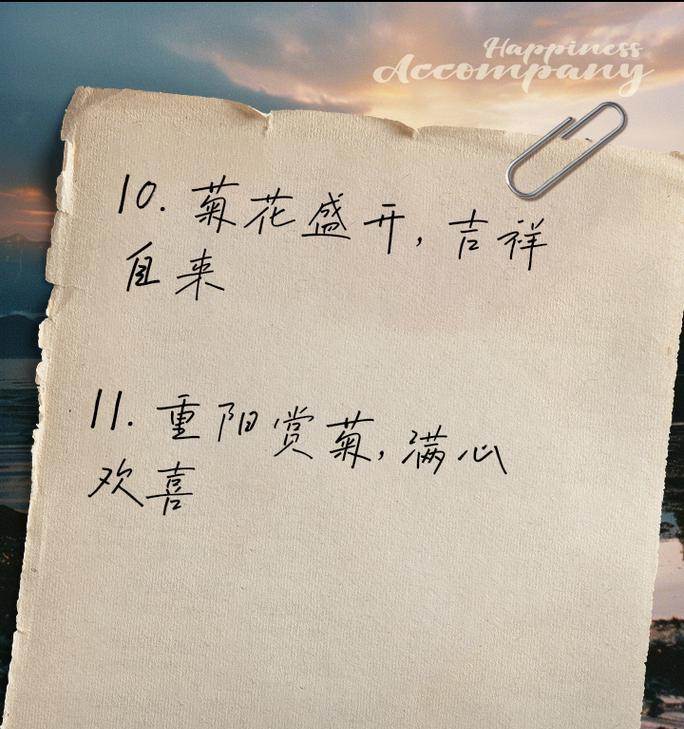 Happiness
Accompany
10. 菊花盛开，吉祥
自来
11. 重阳赏菊，满心
欢喜